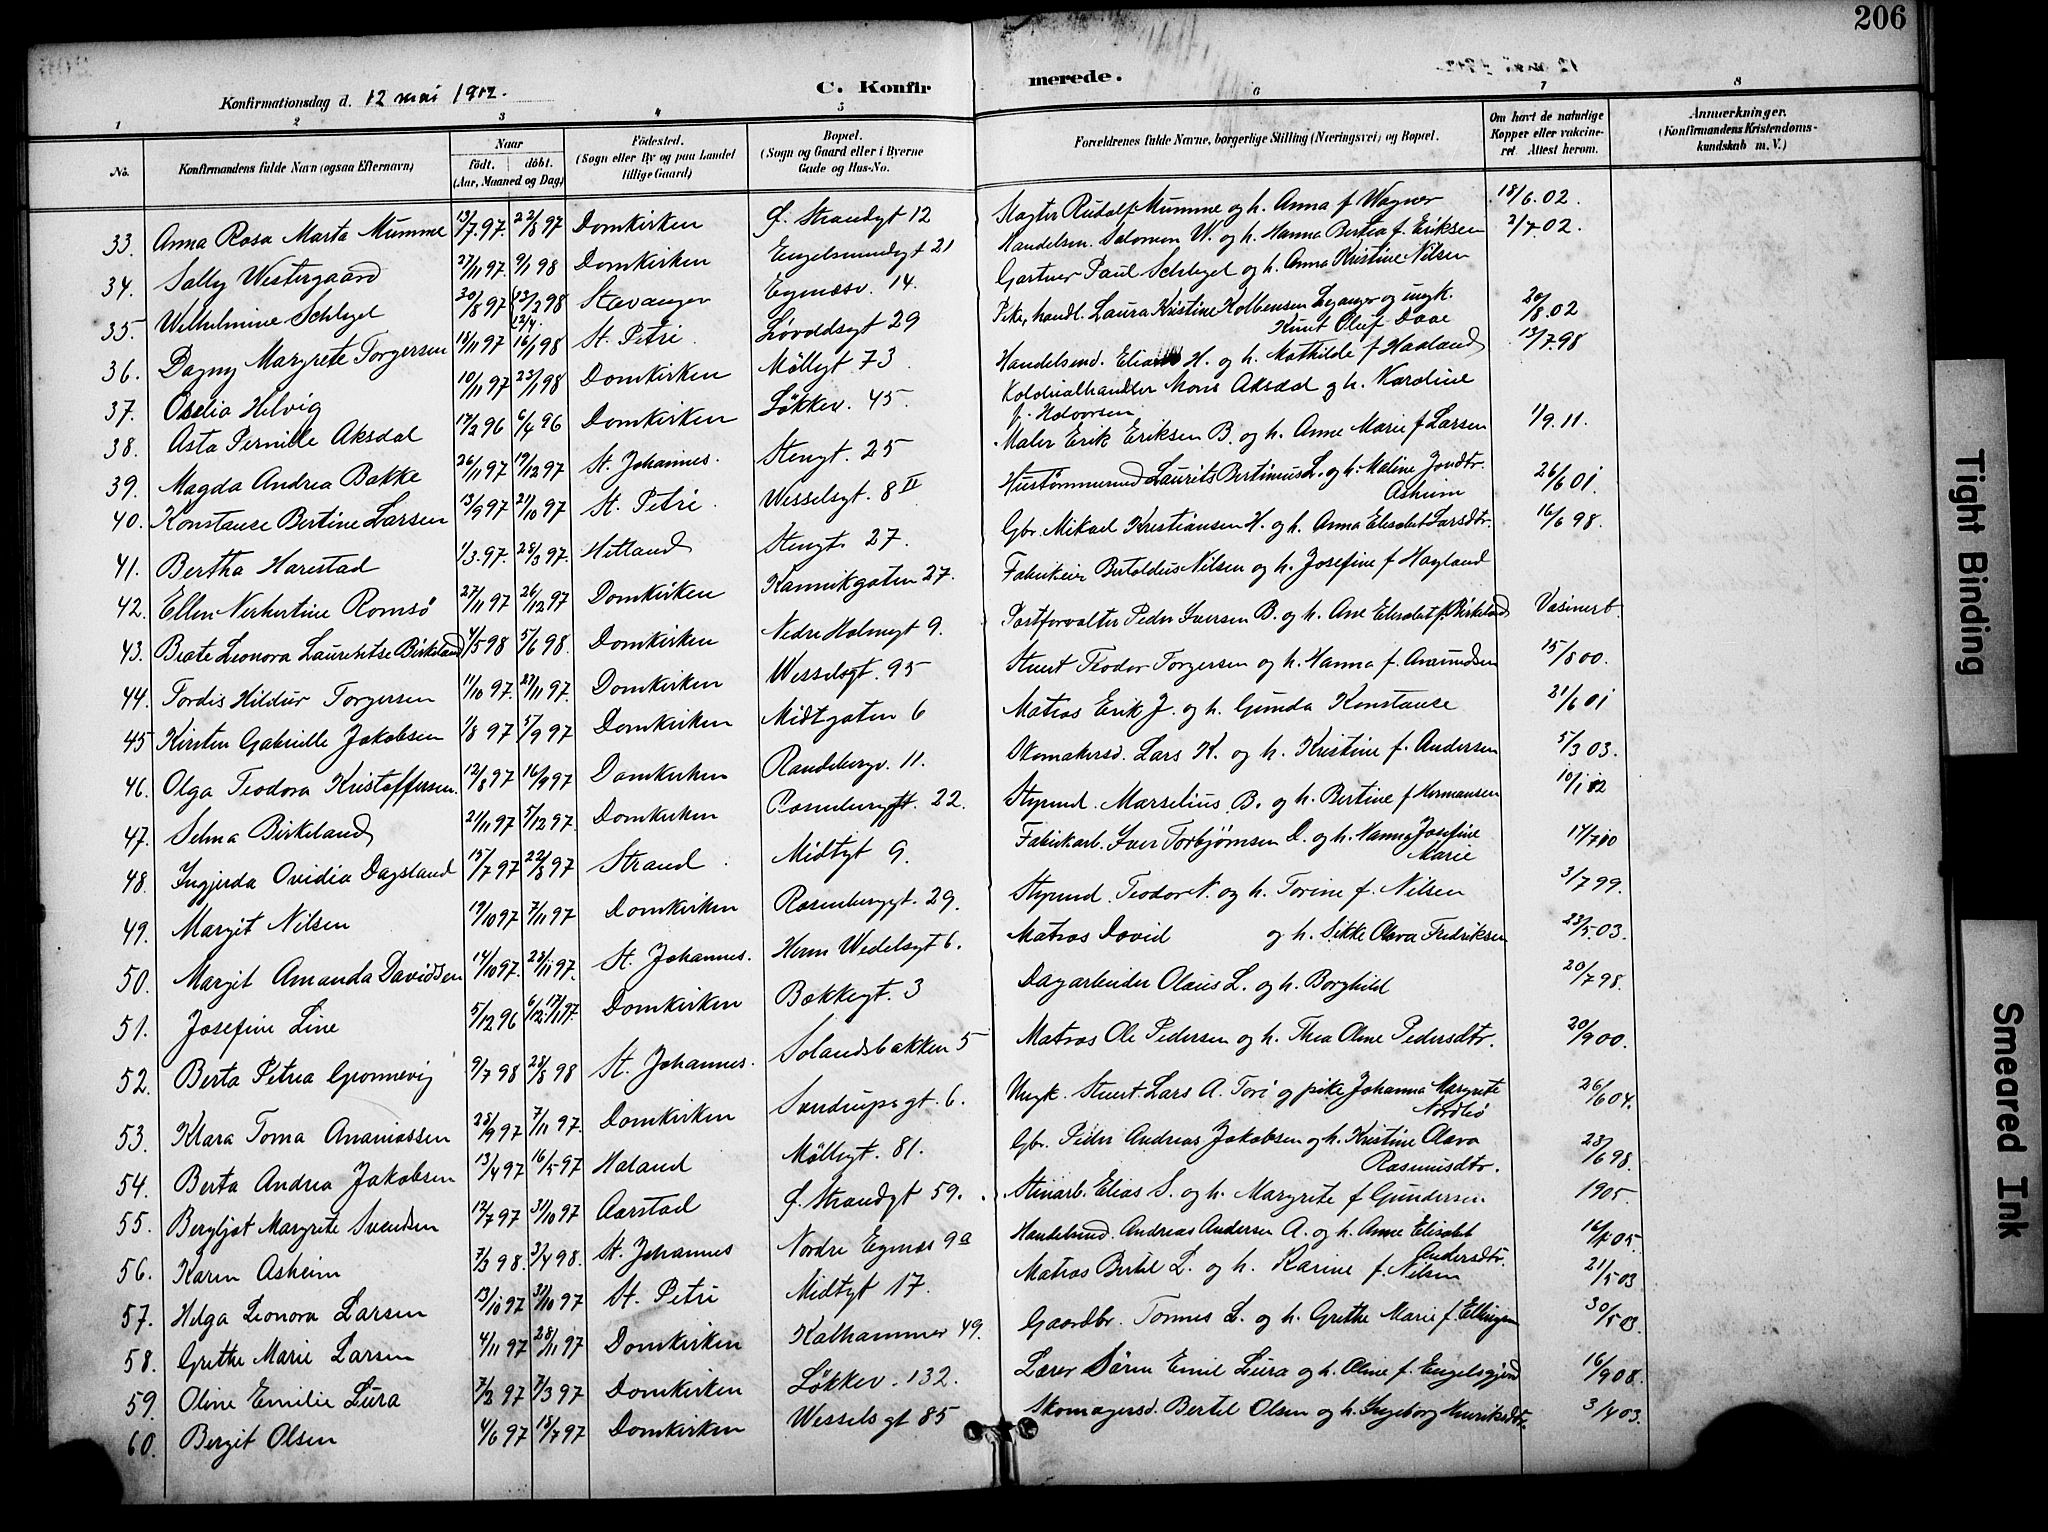 206
Konfirmationsdag d. 12 mai 1912.
C. Konfirmerede.
1 2 3 4 5 6 7 8
No. Konfirmandens fulde Navn (ogsaa Efternavn) Naar født. døbt. (Aar, Maaned og Dag) Fødested. (Sogn eller By og paa Landet tillige Gaard) Bopæl. (Sogn og Gaard eller i Byerne Gade og Hus-No. Forældrenes fulde Navne, borgerlige Stilling (Næringsvei) og Bopæl. Om havt de naturlige Kopper eller vakcineret. Attest herom. Anmærkninger. (Konfirmandens Kristendomskundskab m. V.)
33. Anna Rosa Marta Mumme 13/7 97. 22/8 97 Domkirken Ø. Strandgt 12 Slagter Rudolf Mumme og h. Anna f. Wagner 18/6.02.
34. Sally Westergaard 27/11 97. 9/1 98 Domkirken Engelsmindegt 21 Handelsm. Salomon W. og h. Hanna Bertea f. Eriksen 2/7.02.
35. Wilhelmine Schlegel 30/8 97 13/2 98 Stavanger Egnæsv. 14. Gartner Paul Schlegel og h. Anna Kristine Nilsen
36. Dagny Margrete Torgersen 18/11 97 16/1 98 St. Petri. Løvdalsgt 29 Pike, handl. Laura Kristine Kolbensen Leganger og ungk. Knut Oluf Daae 20/8 02
37. Oselia Helvig 10/11 97 23/1 98 Domkirken Møllegt 73 Handelsmd. Elias H. og h. Mathilde f Haaland 13/7 98
38. Asta Pernille Aksdal 17/2 96 6/4 96 Domkirken Løkkev. 45. Kolonialhandler Mons Aksdal og h. Karoline f. Halvorsen
39. Magda Andrea Bakke 26/11 97 19/12 97 St. Johannes. Stengt. 25 Maler Erik Eriksen B. og h. Anne Marie f Larsen 1/9.11.
40. Konstance Bertine Larsen 13/9 97 21/10 97 St. Petri. Wesselsgt. 8 II Hustømmermd Laurits Bertinius L. og h. Maline Jondtr. Asheim 26/6 01.
41. Bertha Harestad 1/3. 97. 28/3 97. Hetland Stengt. 27. Gbr. Mikael Kristiansen H. og h. Anna Elisabet Larsdtr. 16/6 98.
42. Ellen Nerkertine Romsø 27/11 97 26/12 97 Domkirken Kannikgaten 27. Fabrikeier Bertoldius Nilsen og h. Josefine f Hagland
43. Beate Leonora Laurentse Birkeland 4/5 98 5/6 98. Domkirken Nedre Holmegt 9. Postforvalter Peder Iversen B. og h. Ane Elisabet f. Birkeland Vasinert
44. Tordis Hildur Torgersen 11/10 97. 27/11 97. Domkirken Wesselsgt. 95 Stuert Teodor Torgersen og h. Hanna f. Anundsen 15/8 00.
45 Kirsten Gabrielle Jakobsen 1/8 97 5/9 97 Domkirken Midtgaten 6 Matros Erik J. og h. Gunda Konstance 21/6 01
46. Olga Teodora Kristoffersen. 12/8 97 16/9 97 Domkirken Randebergv. 11. Skomakersv. Lars K. og h. Kristine f. Andersen 5/3 03.
47. Selma Birkeland 21/11 97 5/12 97. Domkirken Rosenberggt. 22. Styrmd. Marselius B. og h. Bertine f Hermansen 10/1 12
48. Ingjerda Ovidia Dagsland 15/7 97 22/8 97 Strand Midtgt 9. Fabrikarb. Iver Torbjørnsen D. og h. Hanna Josefine Marie 14/7 10
49. Margit Nilsen 19/10 97 7/11 97 Domkirken Rosenberggt. 29. Styrmd. Teodor N. og h. Torine f. Nilsen 3/7 99.
50. Margit Amanda Davidsen 14/10 97. 28/11 97. St. Johannes. Herm Wedelsgt 6. Matros David og h. Sikke Olava Fredriksen 23/5. 03.
51. Josefine Line 5/12 96 6/12. 17/1 97. Domkirken Bakkegt. 3 Dagarbeider Olaus L. og h. Borghild 20/7 98.
52. Berta Petrea Gronnevig 9/7 98 28/8 98 St. Johannes. Solandsbakken 5 Matros Ole Pedersen og h. Thea Oline Pedersdtr. 20/9 00.
53. Klara Toma Ananiassen 28/9 97 7/11 97. Domkirken Sverdrupsgt. 6. Ungk. Stuert Lars A. Tori og pike Johanna Margrete Nordbø 26/6 04.
54. Berta Andrea Jakobsen 13/4 97 16/5 97 Haland Møllegt. 81. Gbr. Peder Andreas Jakobsen og h. Kristine Olava Rasmusdtr. 28/6 98.
55. Bergljot Margrete Svendsen 12/7 97 31/10 97 Aarstad Ø. Strandgt 59. Stenarb. Elias S. og h. Margrete f Gundersen 1905
56. Karen Asheim 7/3 98. 3/4 98. St. Johannes Nordre Egnæs 9a Handelsmd. Andreas Andersen A. og h. Anne Elisabet Andersdtr. 05.
57. Helga Leonora Larsen 13/10 97 31/10 97 St. Petri Midtgt 17. Matros Bertel L. og h. Karine f. Nilsen 21/5 03
58. Grethe Marie Larsen 4/11 97 28/11 97 Domkirken Kalhammer 49. Gaardbr. Tønnes L. og h. Grethe Marie f. Ellingsen 30/5 03.
59. Oline Emilie Lura 7/2 97 7/3 97 Domkirken Løkkev. 132. Lærer Søren Emil Lura og h. Oline f. Engelsgjerd 16/9 08.
60. Bergit Olsen 4/6 97 18/7 97 Domkirken Wesselsgt 85 Skomagersv. Bertel Olsen og h. Ingeborg Henriksdtr. 3/4 03.
Tight Binding
Smeared Ink